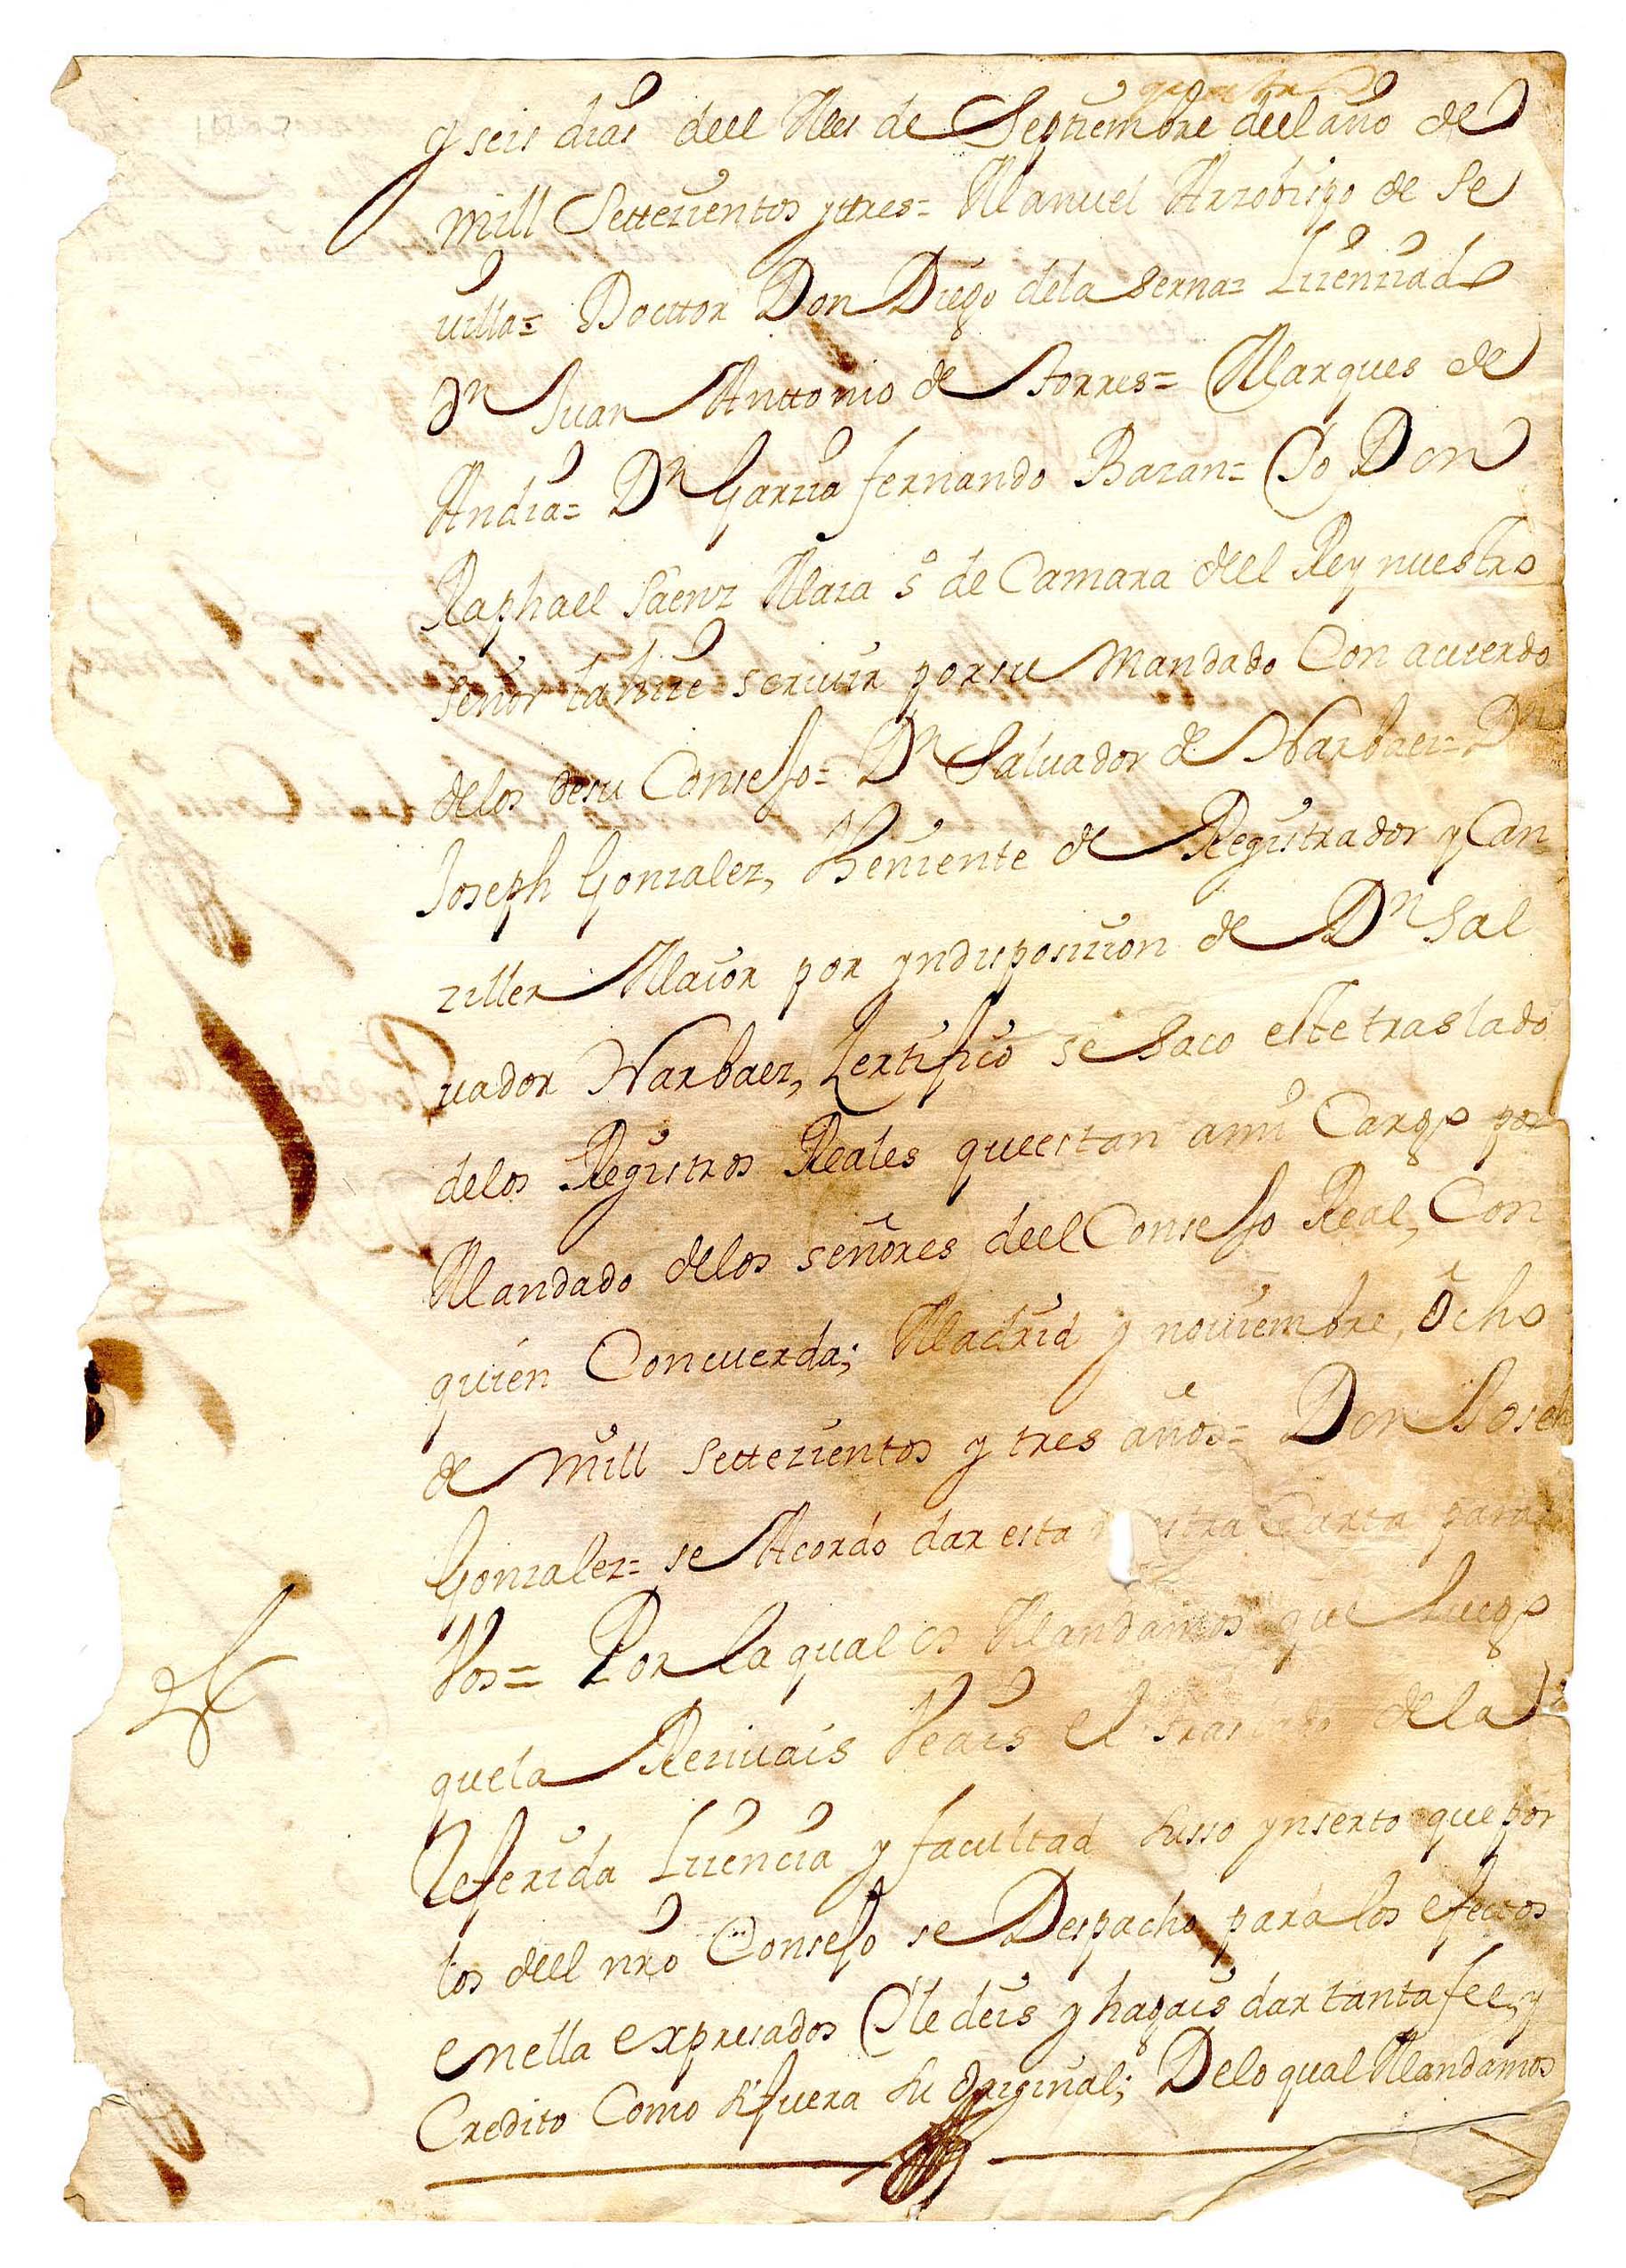 y seis dias deel Mes de Septiembre deel año de
mill Settezientos y ttres= Manuel Arzobispo de Se
uilla= Docttor Don Diego dela Serna= Lizenziado
Dn Juan Anttonio de Torres= Marques de
Andia= Dn Garzia fernando Bazan= Yo Don
Raphael Saenz Maza sº de Camara deel Rey nuestro
señor la hize scriuir por su Mandado Con acuerdo
delos desu Consejo= Dn Saluador de Narbaez= Dn
Joseph Gonzalez, Theniente de Registrador y Can
ziller Maior por yndisposizion de Dn Sal
uador Narbaez, Zertifico se Saco este traslado
delos Registros Reales que estan ami Cargo por
Mandado delos señores deel Consejo Real, Con
quien Concuerda; Madrid y nouiembre, ocho
de mill settezientos y tres años= Don Joseph
Gonzalez= se Acordo dar esta nuestra Carta para
Vos= Por la qual os Mandamos que Luego
quela Reziuais Veais el traslado dela
Referida Lizencia y facultad Susso ynserto que por
los deel nro Consejo se Despacho para los efectos
enella expresados Y le deis y hagais dar tanta fee, y
Credito Como si fuera su original; Delo qual Mandamos